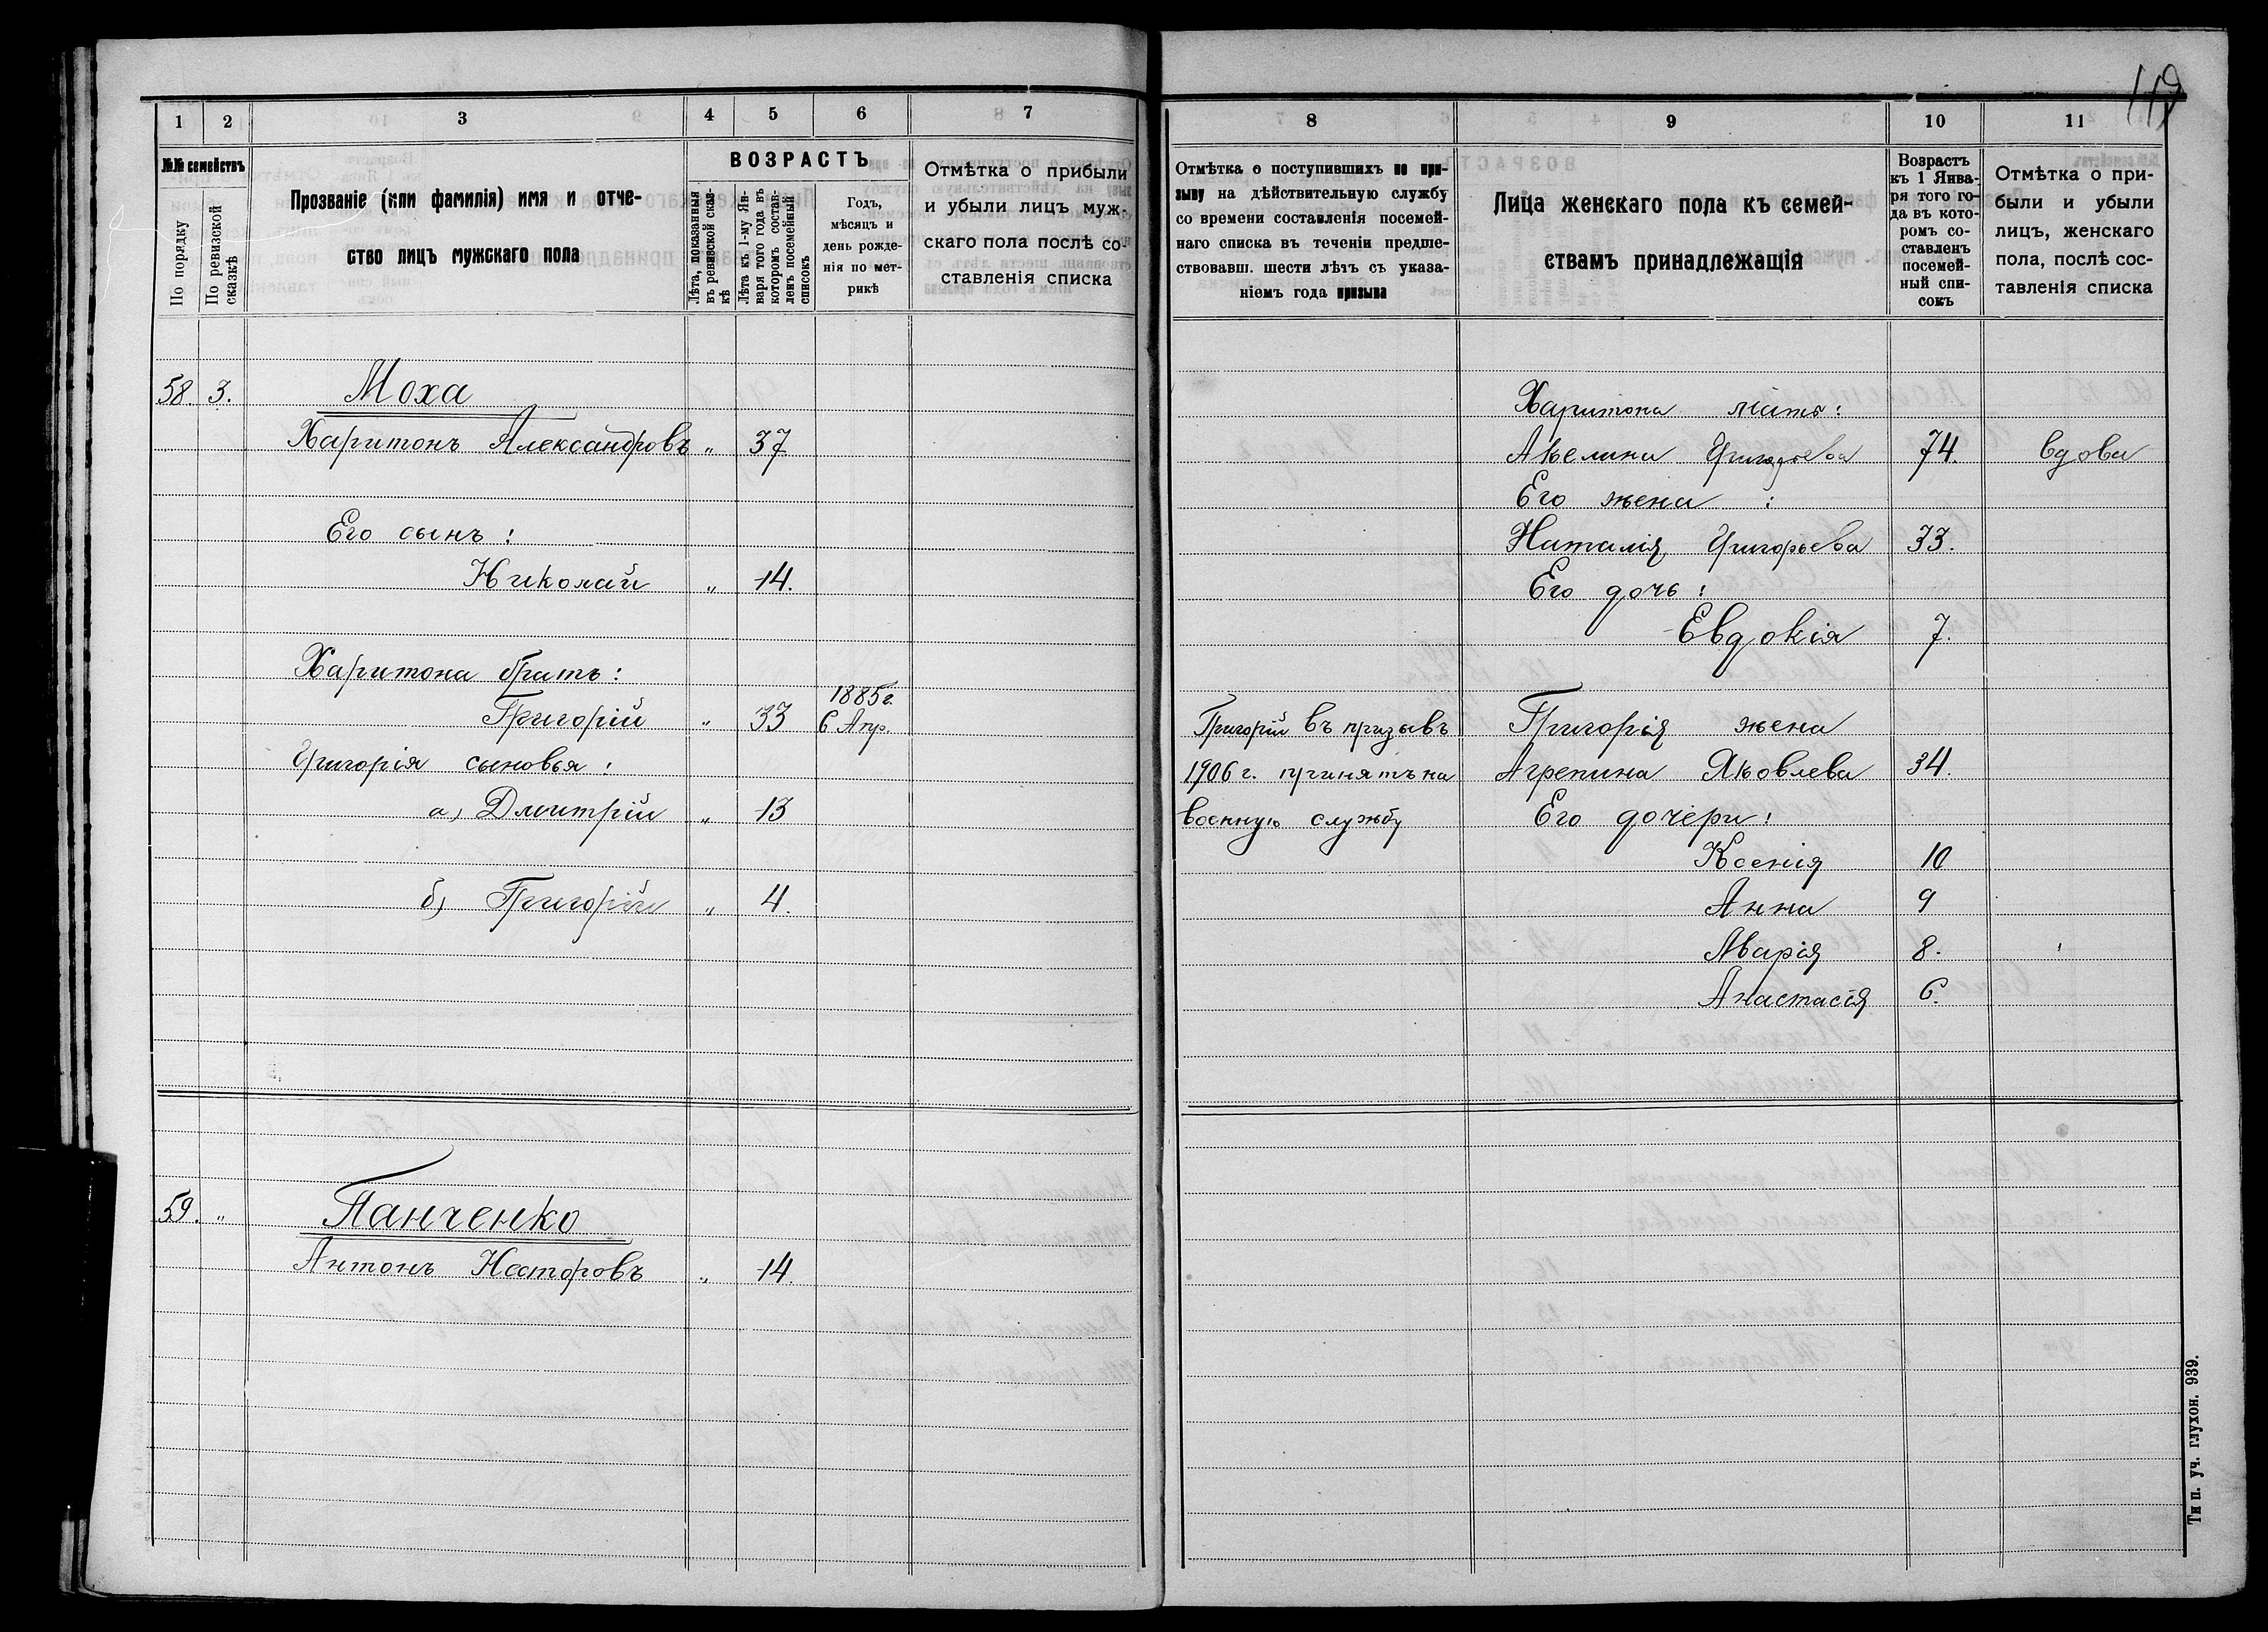 119
1 2 3 4 5 6 7
№№ семействъ
По порядку
По ревизской сказкѣ
Прозваніе (или фамилія) имя и отче-
ство лицъ мужскаго пола
ВОЗРАСТЪ
Лѣта, показанныя
въ ревизской сказ-
кѣ
Лѣта къ 1-му Ян-
варя того года въ
которомъ состав-
ленъ посемейный
списокъ
Годъ,
мѣсяцъ и
день рожде-
нія по мет-
рикѣ
Отмѣтка о прибыли
и убыли лицъ муж-
скаго пола послѣ со-
ставленія списка
58. 3. Моха
Харитонъ Александровъ „ 37
Его сынъ:
Николай „ 14.
Харитона братъ:
1885 г.
Григорій „ 33 6 Апр.
Григорія сыновья:
а) Дмитрій „ 13
б) Григорій „ 4.
59. „ Панченко
Антонъ Несторовъ „ 14.
8 9 10 11
Отмѣтка о поступившихъ по при-
зыву на дѣйствительную службу
со времени составленія посемей-
наго списка въ теченіи предше-
ствовавш. шести лѣтъ съ указа-
ніемъ года призыва
Лица женскаго пола къ семей-
ствамъ принадлежащія
Возрастъ
къ 1 Янва-
ря того го-
да въ кото-
ромъ со-
ставленъ
посемей-
ный спи-
сокъ
Отмѣтка о при-
были и убыли
лицъ, женскаго
пола, послѣ сос-
тавленія списка
Харитона мать:
Акелина Григорьева 74. вдова
Его жена :
Наталія Григорьева 33.
Его дочь:
Евдокія 7.
Григорій въ призывъ Григорія жена
1906 г. принятъ на Агрепина Яковлева 34.
военную службу Его дочери:
Ксенія 10
Анна 9
Варія 8.
Анастасія 6.
Тип. уч. глухон. 939.